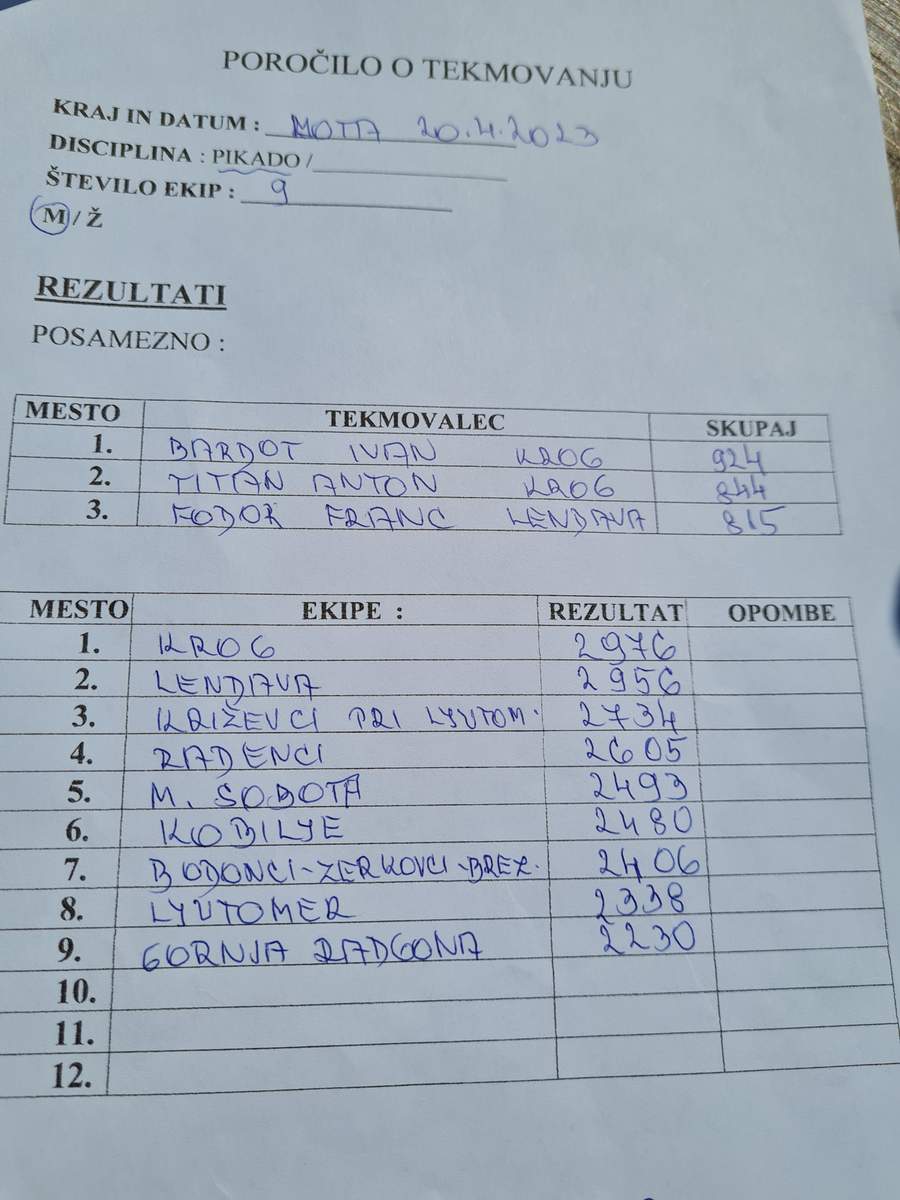 POROČILO O TEKMOVANJU
KRAJ IN DATUM : MOTA 20.4.2023
DISCIPLINA : PIKADO /
ŠTEVILO EKIP : 9
M / Ž
REZULTATI
POSAMEZNO :
MESTO TEKMOVALEC SKUPAJ
1. BARDOT IVAN KROG 924
2. TITAN ANTON KROG 844
3. FODOR FRANC LENDAVA 815
MESTO EKIPE : REZULTAT OPOMBE
1. KROG 2976
2. LENDAVA 2956
3. KRIŽEVCI PRI LJUTOM. 2734
4. RADENCI 2605
5. M. SOBOTA 2493
6. KOBILJE 2480
7. BODONCI-ZERKOVCI-BREZ. 2406
8. LJUTOMER 2338
9. GORNJA RADGONA 2230
10.
11.
12.